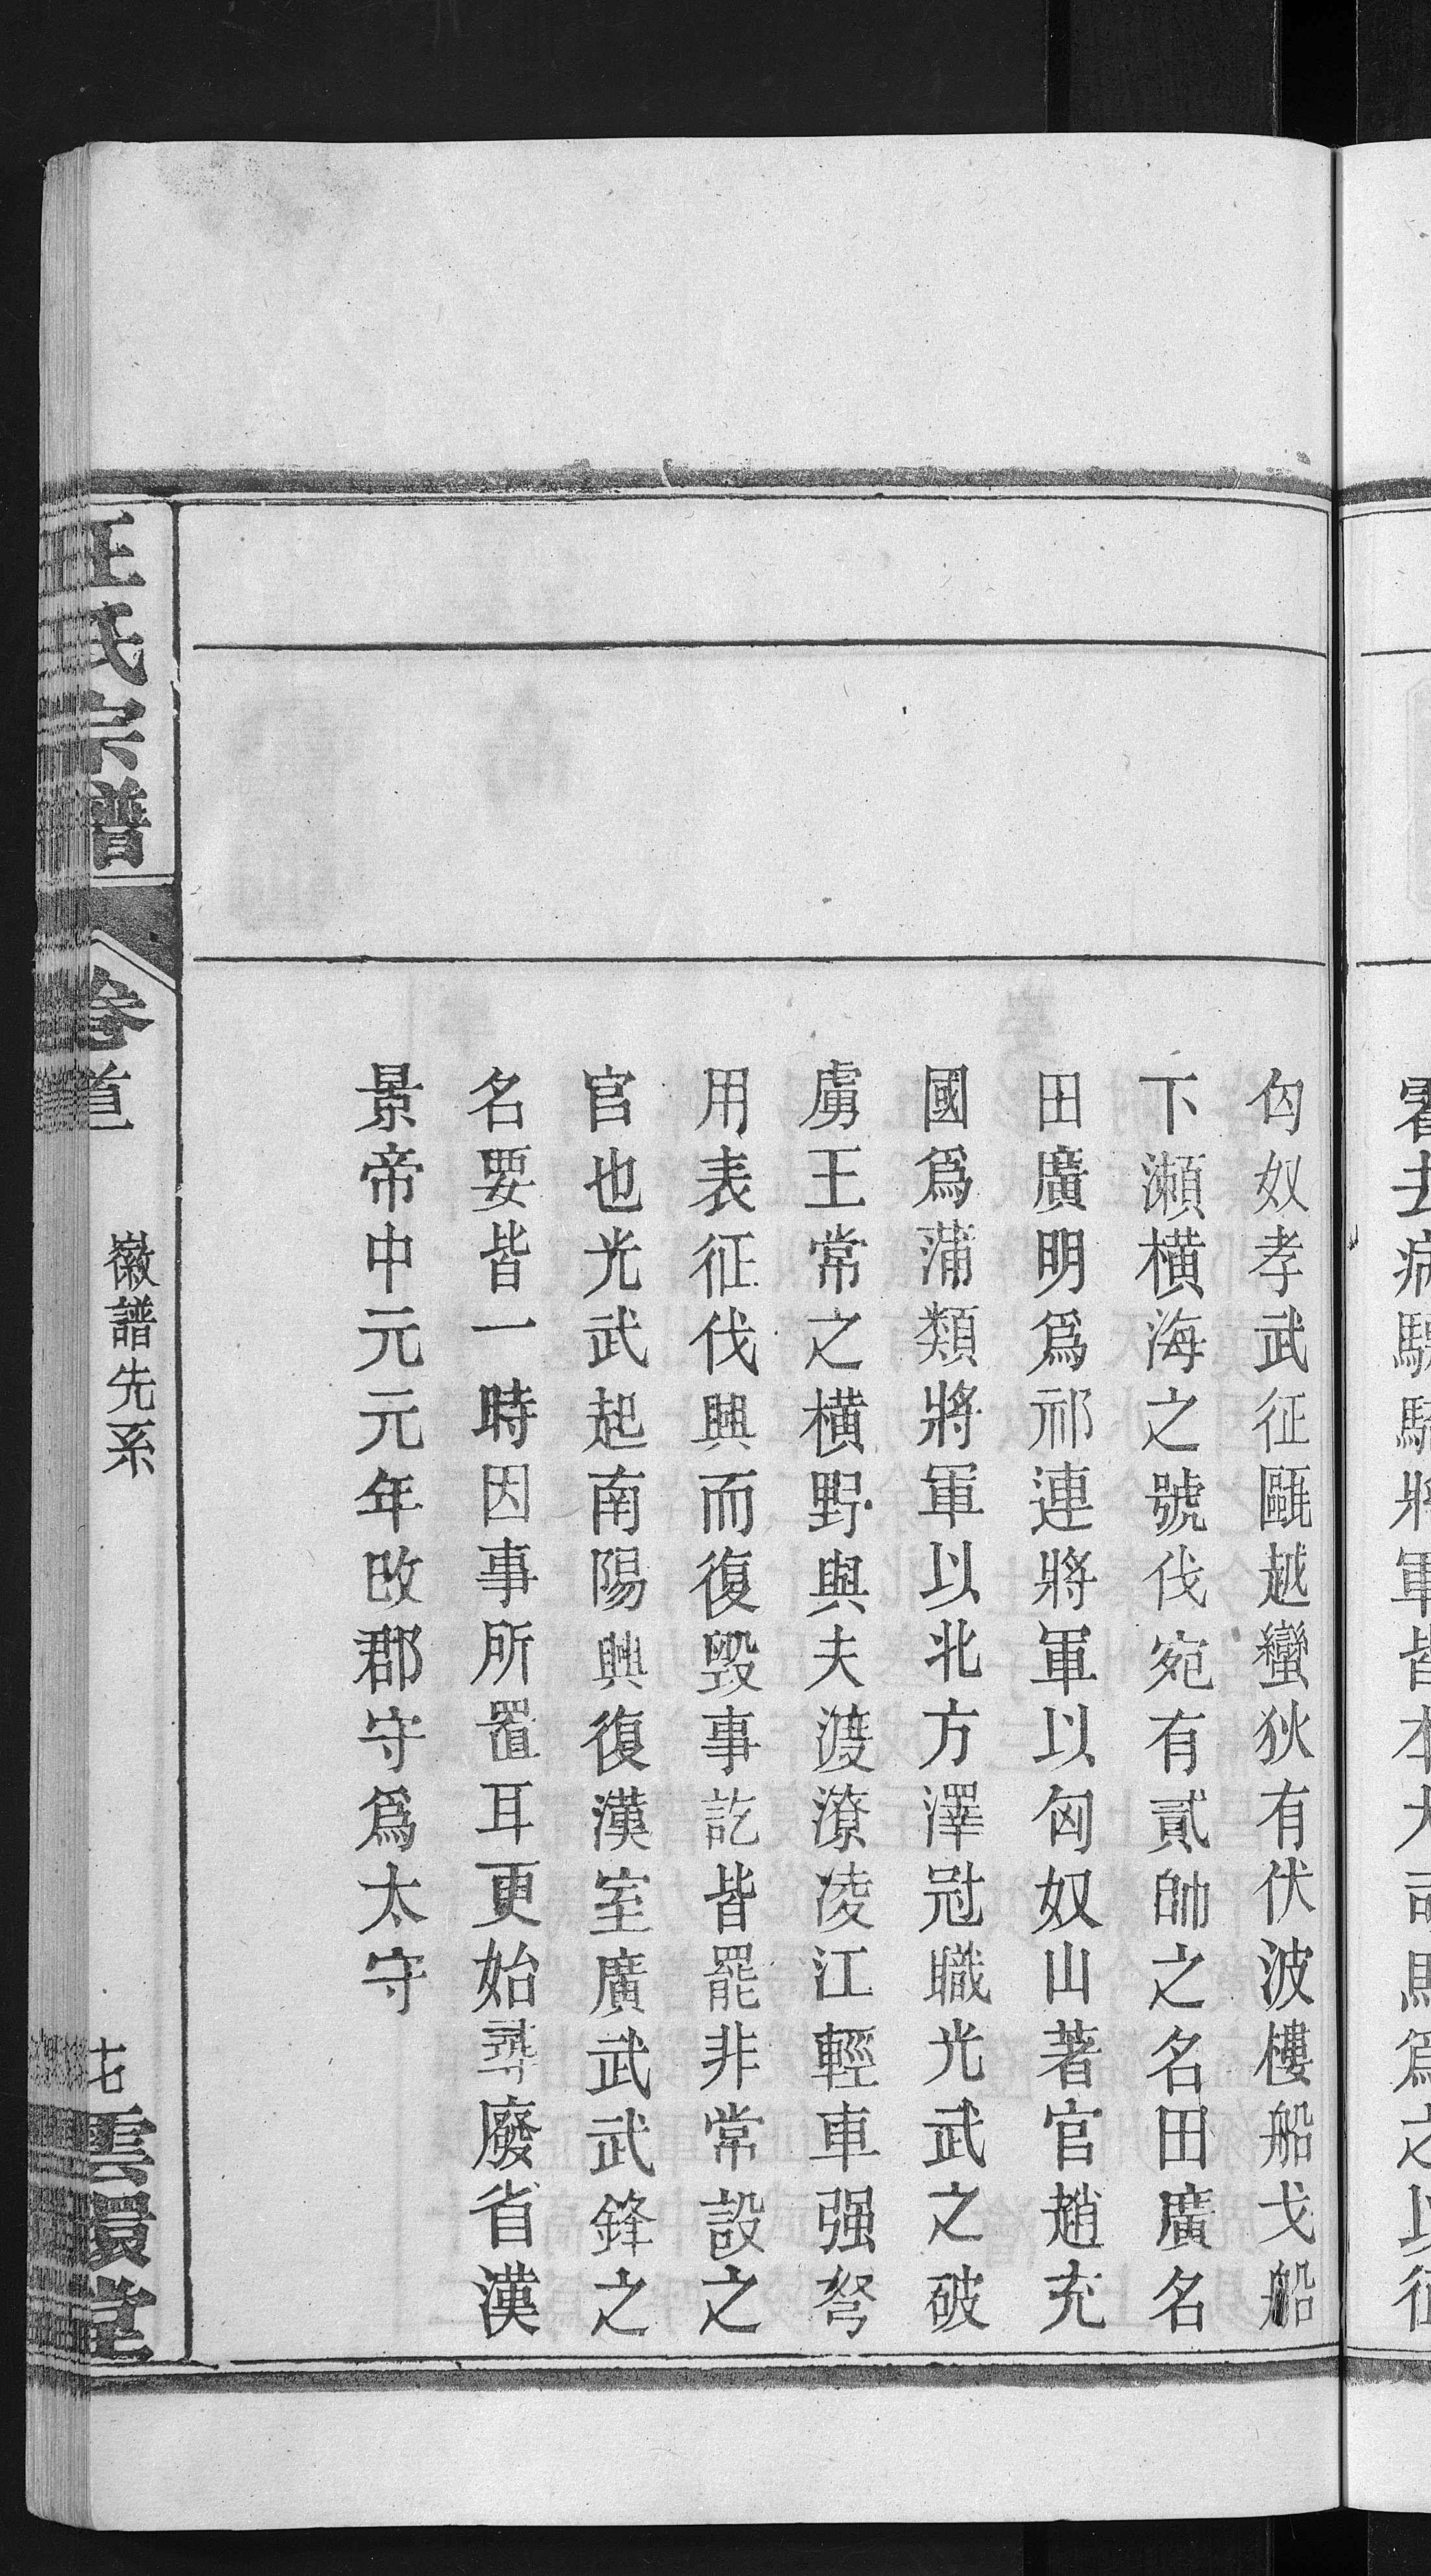 匈奴孝武征甌越蠻狄有伏波樓船戈船
下瀨橫海之號伐宛有貳帥之名田廣名
田廣明爲祁連將軍以匈奴山著官趙充
國爲蒲類將軍以北方澤冠職光武之破
虜王常之橫野與夫渡潦凌江輕車强弩
用表征伐興而復毀事訖皆罷非常設之
官也光武起南陽興復漢室廣武武鋒之
名要皆一時因事所置耳更始尋廢省漢
景帝中元元年改郡守爲太守
汪氏宗譜
卷首
徽譜先系